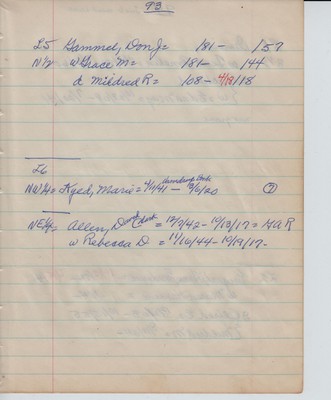 93
L5 Gammel, Don J = 181 - 157
N½ w Grace M = 181 - 144
d Mildred R = 108 - 4/19/18
L6
NW¼ = Kyed, Maria = 4/1/41 - 12/6/20 ?
NE¼ Allen, D = 12/7/42 - 10/13/17 = GAR
w Rebecca D = 11/16/44 - 10/19/17 -